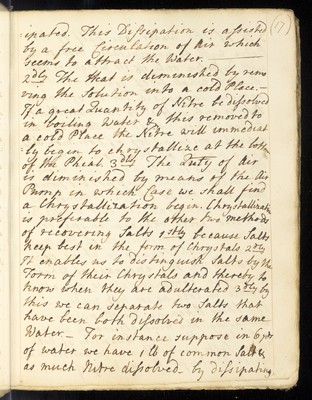 17
ipated. This Dissipation is assisted
by a free Circulation of Air which
seems to attract the Water.
2dly The Heat is diminished by remo
ving the Solution into a cold Place.—
If a great Quantity of Nitre be dissolved
in boiling Water & this removed to
a cold Place the Nitre will immediat
ly begin to chrystallize at the bottom
of the Phial. 3dly The duty of Air
is diminished by means of the Air
Pump in which Case we shall find
a Chrystallization begin. Chrystallization
is preferable to the other two methods
of recovering Salts 1stly because Salts
keep best in the form of Chrystals 2dly
It enables us to distinguish Salts by the
Form of their Chrystals and thereby to
know when they are adulterated 3dly by
this we can separate two Salts that
have been both dissolved in the same
Water— For instance suppose in 6
of water we have 1 lb of common Salt &
as much Nitre dissolved by dissipating